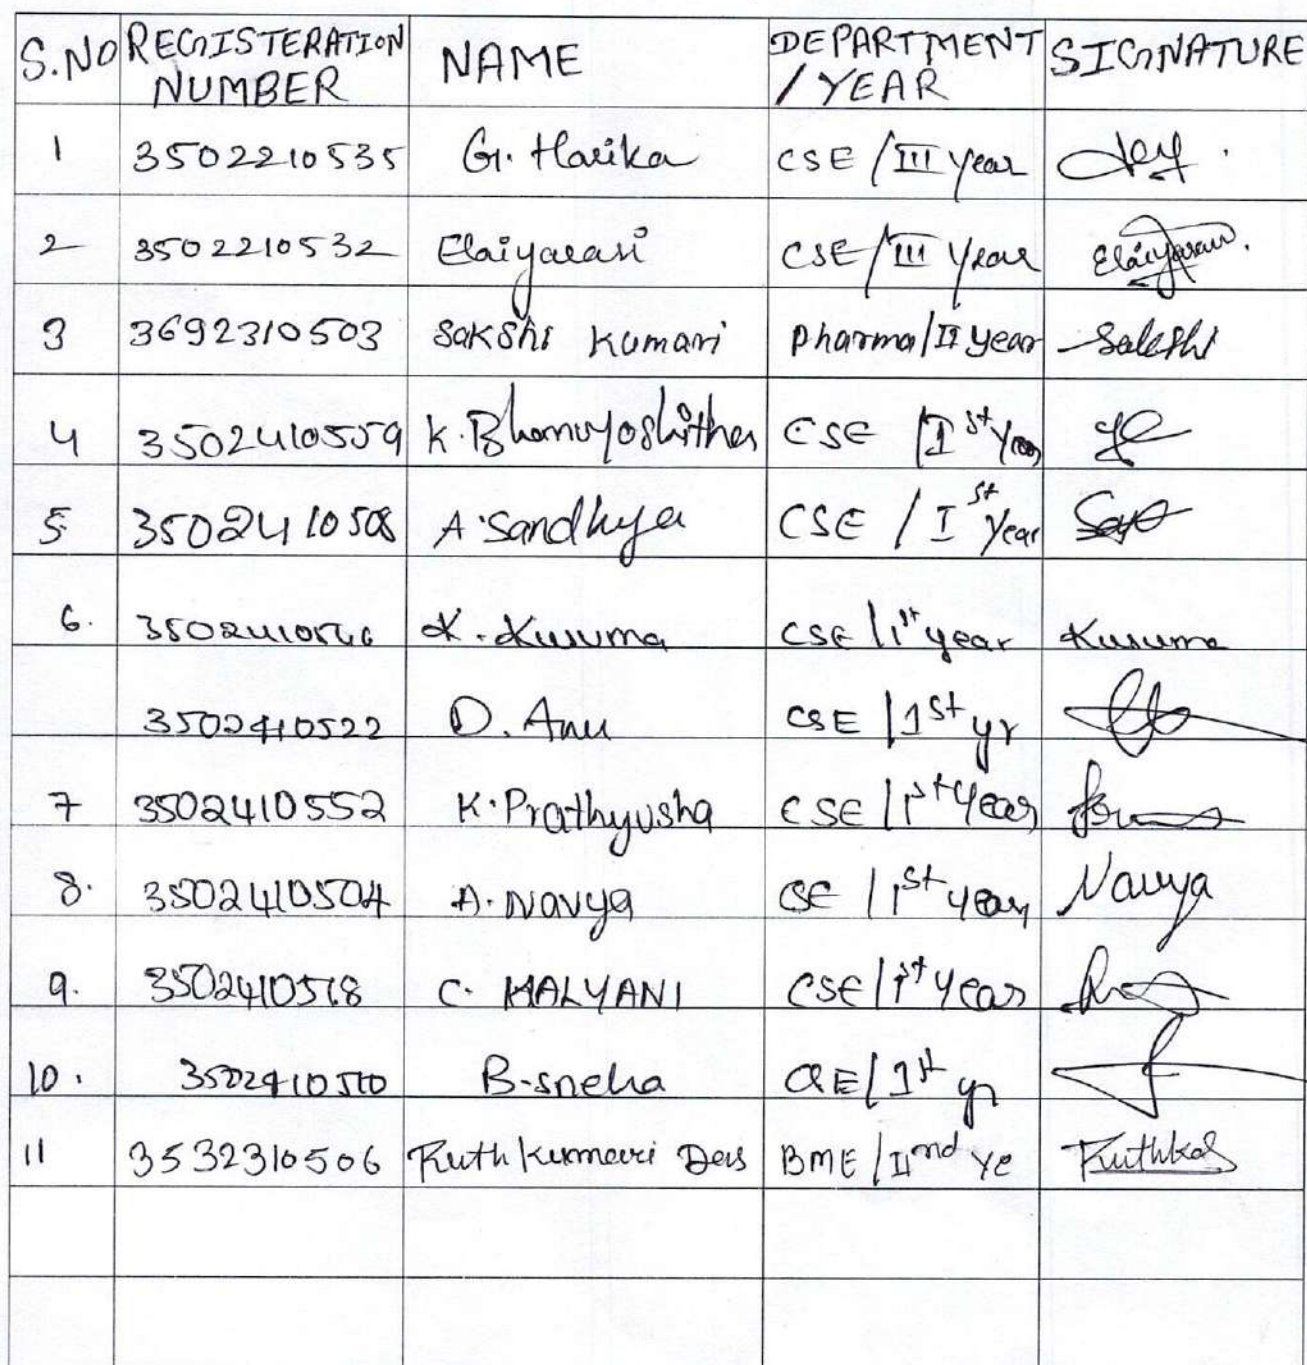 S.NO REGISTERATION NUMBER NAME DEPARTMENT / YEAR SIGNATURE
1 3502210535 G. Harika CSE / III year
2 3502210532 Elaiyarasi CSE / III Year Elaiyarasi.
3 3692310503 Sakshi Kumari Pharma / II year Sakshi
4 3502410559 K. Bhanuyoshitha CSE / I st Year
5 3502410508 A. Sandhya CSE / I st Year
6. 3502410546 K. Kusuma CSE / 1st year Kusuma
3502410522 D. Anu CSE / 1st yr
7 3502410552 K. Prathyusha CSE / 1st Year
8. 3502410504 A. Navya CSE / 1st year Navya
9. 3502410518 C. KALYANI CSE / 1st Year
10. 3502410510 B-sneha CSE / 1st yr
11 3532310506 Ruth Kumari Das BME / IInd Ye